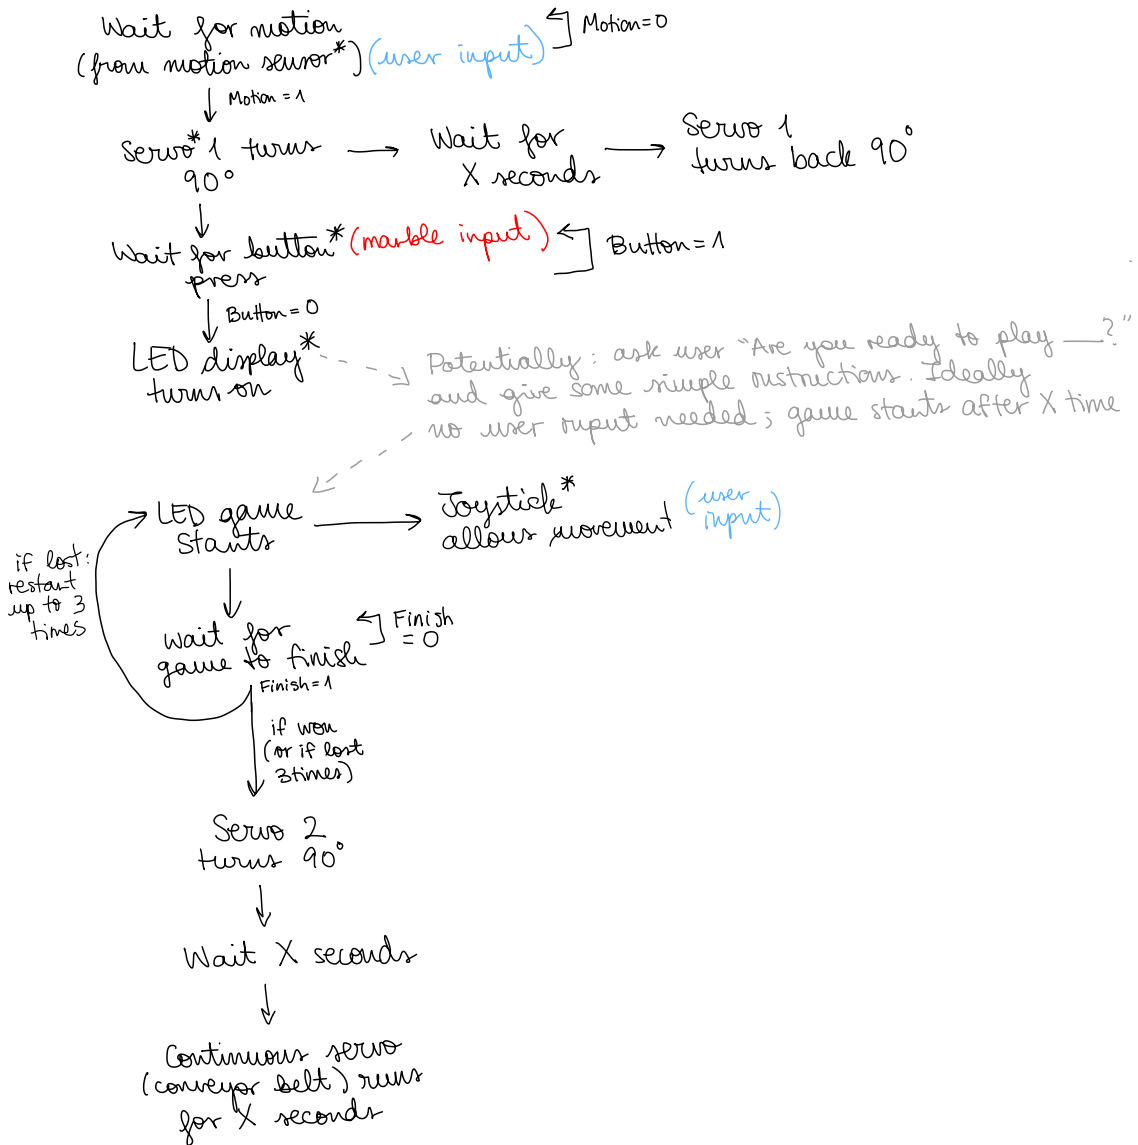 Wait for motion
(from motion sensor*) (user input)
Motion=0
Motion=1
Servo* 1 turns
90°
Wait for
X seconds
Servo 1
turns back 90°
Wait for button* (marble input)
press
Button=1
Button=0
LED display*
turns on
Potentially: ask user "Are you ready to play ___?"
and give some simple instructions. Ideally
no user input needed; game starts after X time
LED game
starts
Joystick*
allows movement
(user
input)
if lost:
restart
up to 3
times
wait for
game to finish
Finish
=0
Finish=1
if won
(or if lost
3times)
Servo 2
turns 90°
Wait X seconds
Continuous servo
(conveyor belt) runs
for X seconds